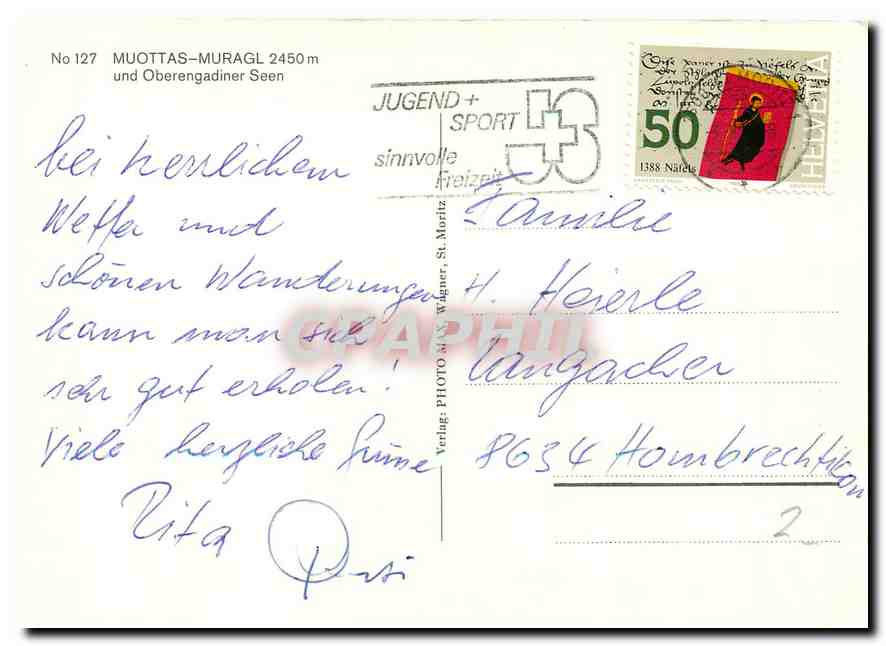 No 127 MUOTTAS–MURAGL 2450 m
und Oberengadiner Seen
bei herrlichem
Wetter und
schönen Wanderungen
kann man sich
sehr gut erholen!
Viele herzliche Grüsse
Rita
JUGEND +
SPORT
sinnvolle
Freizeit
50
1388 Näfels
HELVETIA
Verlag: PHOTO MAX Wagner, St. Moritz
Familie
H. Heierle
Langacher
8634 Hombrechtikon
2
CPAPHIL